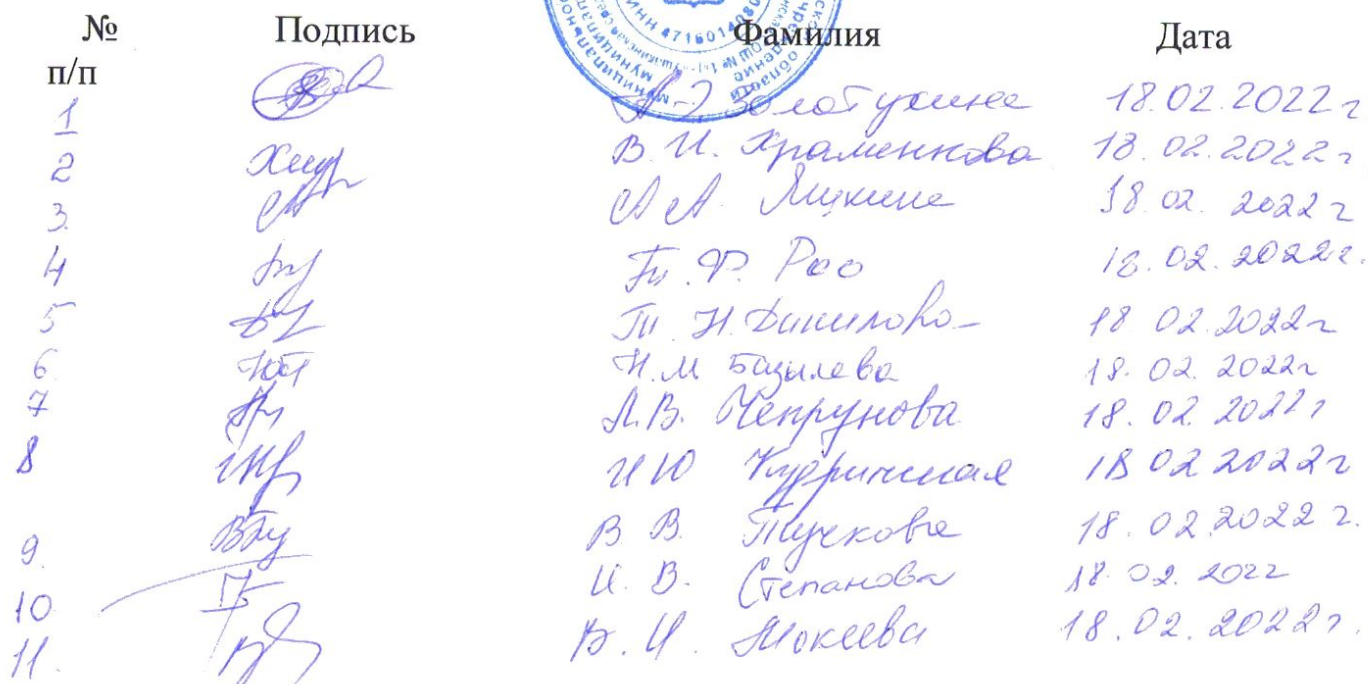 № Подпись Фамилия Дата
п/п
1 Золотухина 18.02.2022г
2 В.И. Храменкова 18.02.2022г
3. А А 18.02.2022г
4 Роо 18.02.2022г.
5 Т Н. Данилова 18 02.2022г
6. Н.М Базылева 18.02.2022г
7 Л.В. Чепрунова 18.02.2022г
8 И Ю Кудричская 18 02 2022г
9. В В. Тучкова 18.02.2022г.
10 И. В. Степанова 18.02.2022
11. В.И. Мокеева 18.02.2022г.